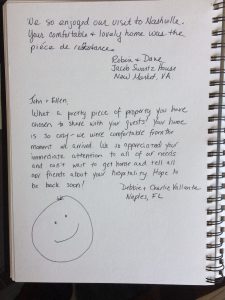 We so enjoyed our visit to Nashville.
Your comfortable + lovely home was the
pièce de resistance.
Robin + Dane
Jacob Swartz House
New Market, VA
John + Ellen,
What a pretty piece of property you have
chosen to share with your guests! Your home
is so cozy - we were comfortable from the
moment we arrived. We so appreciated your
immediate attention to all of our needs
and can't wait to get home and tell all
our friends about your hospitality. Hope to
be back soon!
Debbie + Charlie
Naples, FL